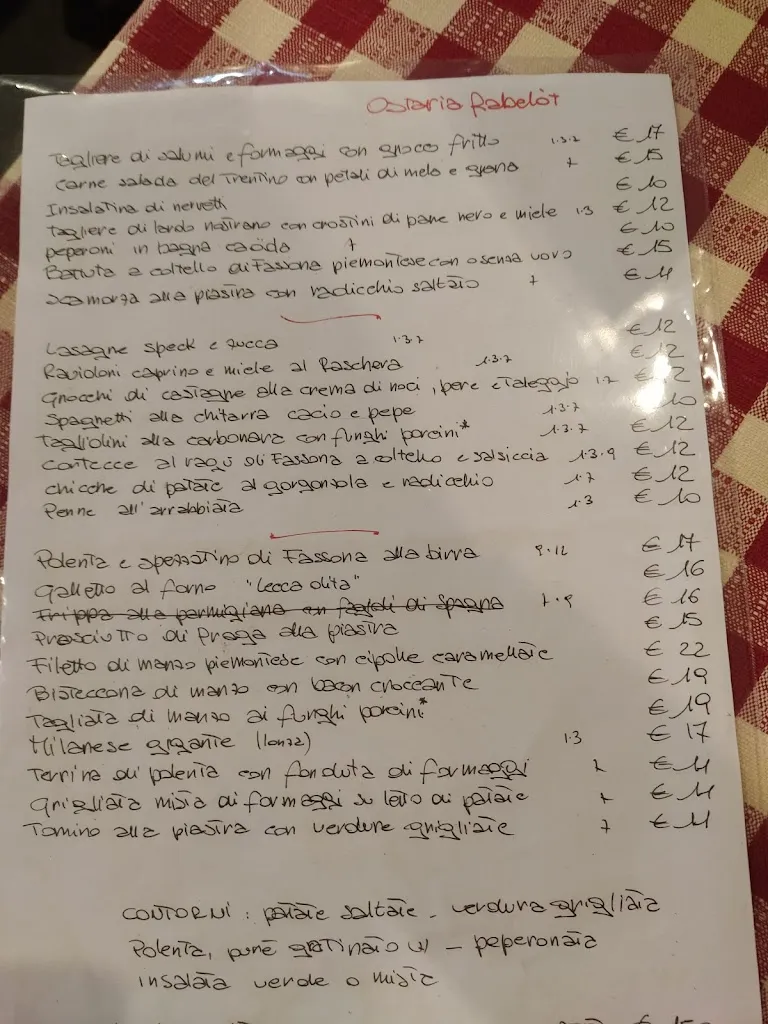 Osteria Rabelòt
Tagliere di salumi e formaggi con gnoco fritto 1.3.7 € 17
Carne salada del Trentino con petali di mela e grana 7 € 15
Insalatina di nervetti € 10
Tagliere di lardo nostrano con crostini di pane nero e miele 1.3 € 12
peperoni in bagna caöda 7 € 10
Battuta a coltello di Fassona piemontese con o senza uovo € 15
Scamorza alla piastra con radicchio saltato 7 € 11
Lasagne speck e zucca 1.3.7 € 12
Ravioloni caprino e miele al Raschera 1.3.7 € 12
Gnocchi di castagne alla crema di noci, pere e Taleggio 1.7 € 12
Spaghetti alla chitarra cacio e pepe 1.3.7 10
Tagliolini alla carbonara con funghi porcini* 1.3.7. € 12
Contecce al ragù di Fassona a coltello e salsiccia 1.3.9 € 12
chicche di patate al gorgonzola e radicchio 1.7 € 12
Penne all'arrabbiata 1.3 € 10
Polenta e spezzatino di Fassona alla birra 9.12 € 17
Galletto al forno "Lecca dita" € 16
Trippa alla parmigiana con fagioli di Spagna 7.9 € 16
Prosciutto di Praga alla piastra € 15
Filetto di manzo piemontese con cipolle caramellate € 22
Bisteccona di manzo con bacon croccante € 19
Tagliata di manzo ai funghi porcini* € 19
Milanese gigante (lonza) 1.3 € 17
Terrina di polenta con fonduta di formaggi 7 € 11
Grigliata mista di formaggi su letto di patate 7 € 11
Tomino alla piastra con verdure grigliate 7 € 11
CONTORNI: patate saltate - verdura grigliata
Polenta, purè gratinato - peperonata
insalata verde o mista